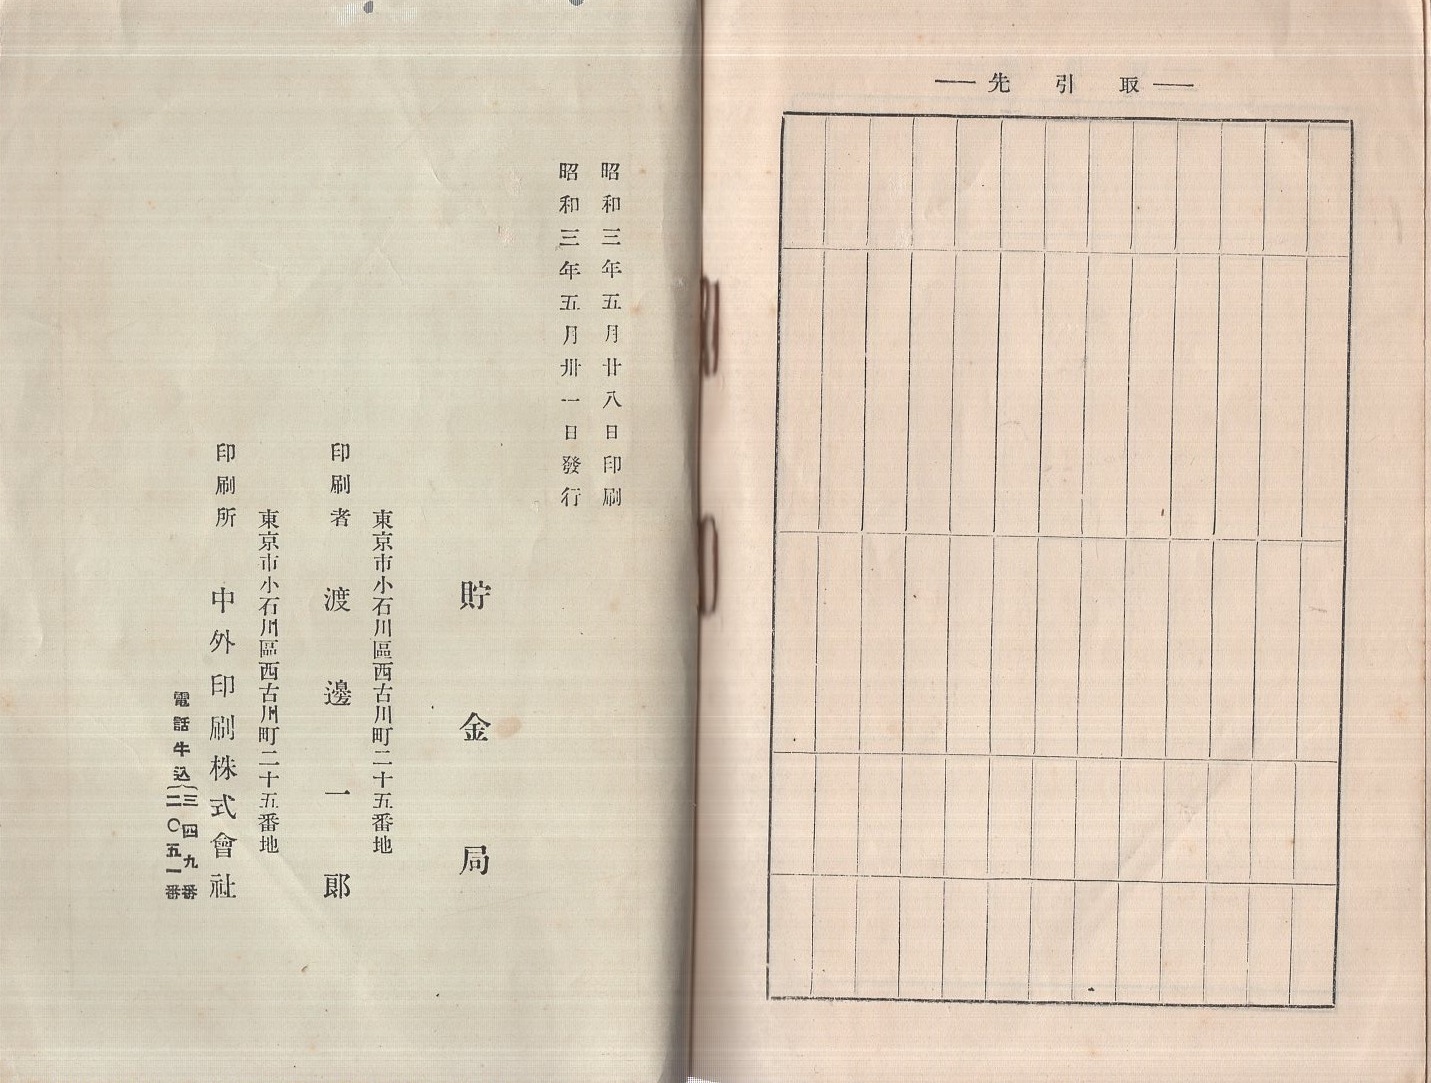 取引先
昭和三年五月廿八日印刷
昭和三年五月卅一日發行
貯金局
東京市小石川區西古川町二十五番地
印刷者 渡邊一郎
東京市小石川區西古川町二十五番地
印刷所 中外印刷株式會社
電話牛込
三四九番
二〇五一番